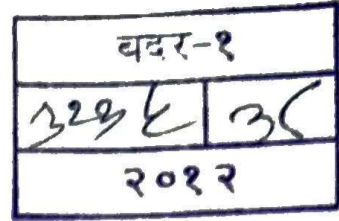 वदर-१
३२३६ ३८
२०१२